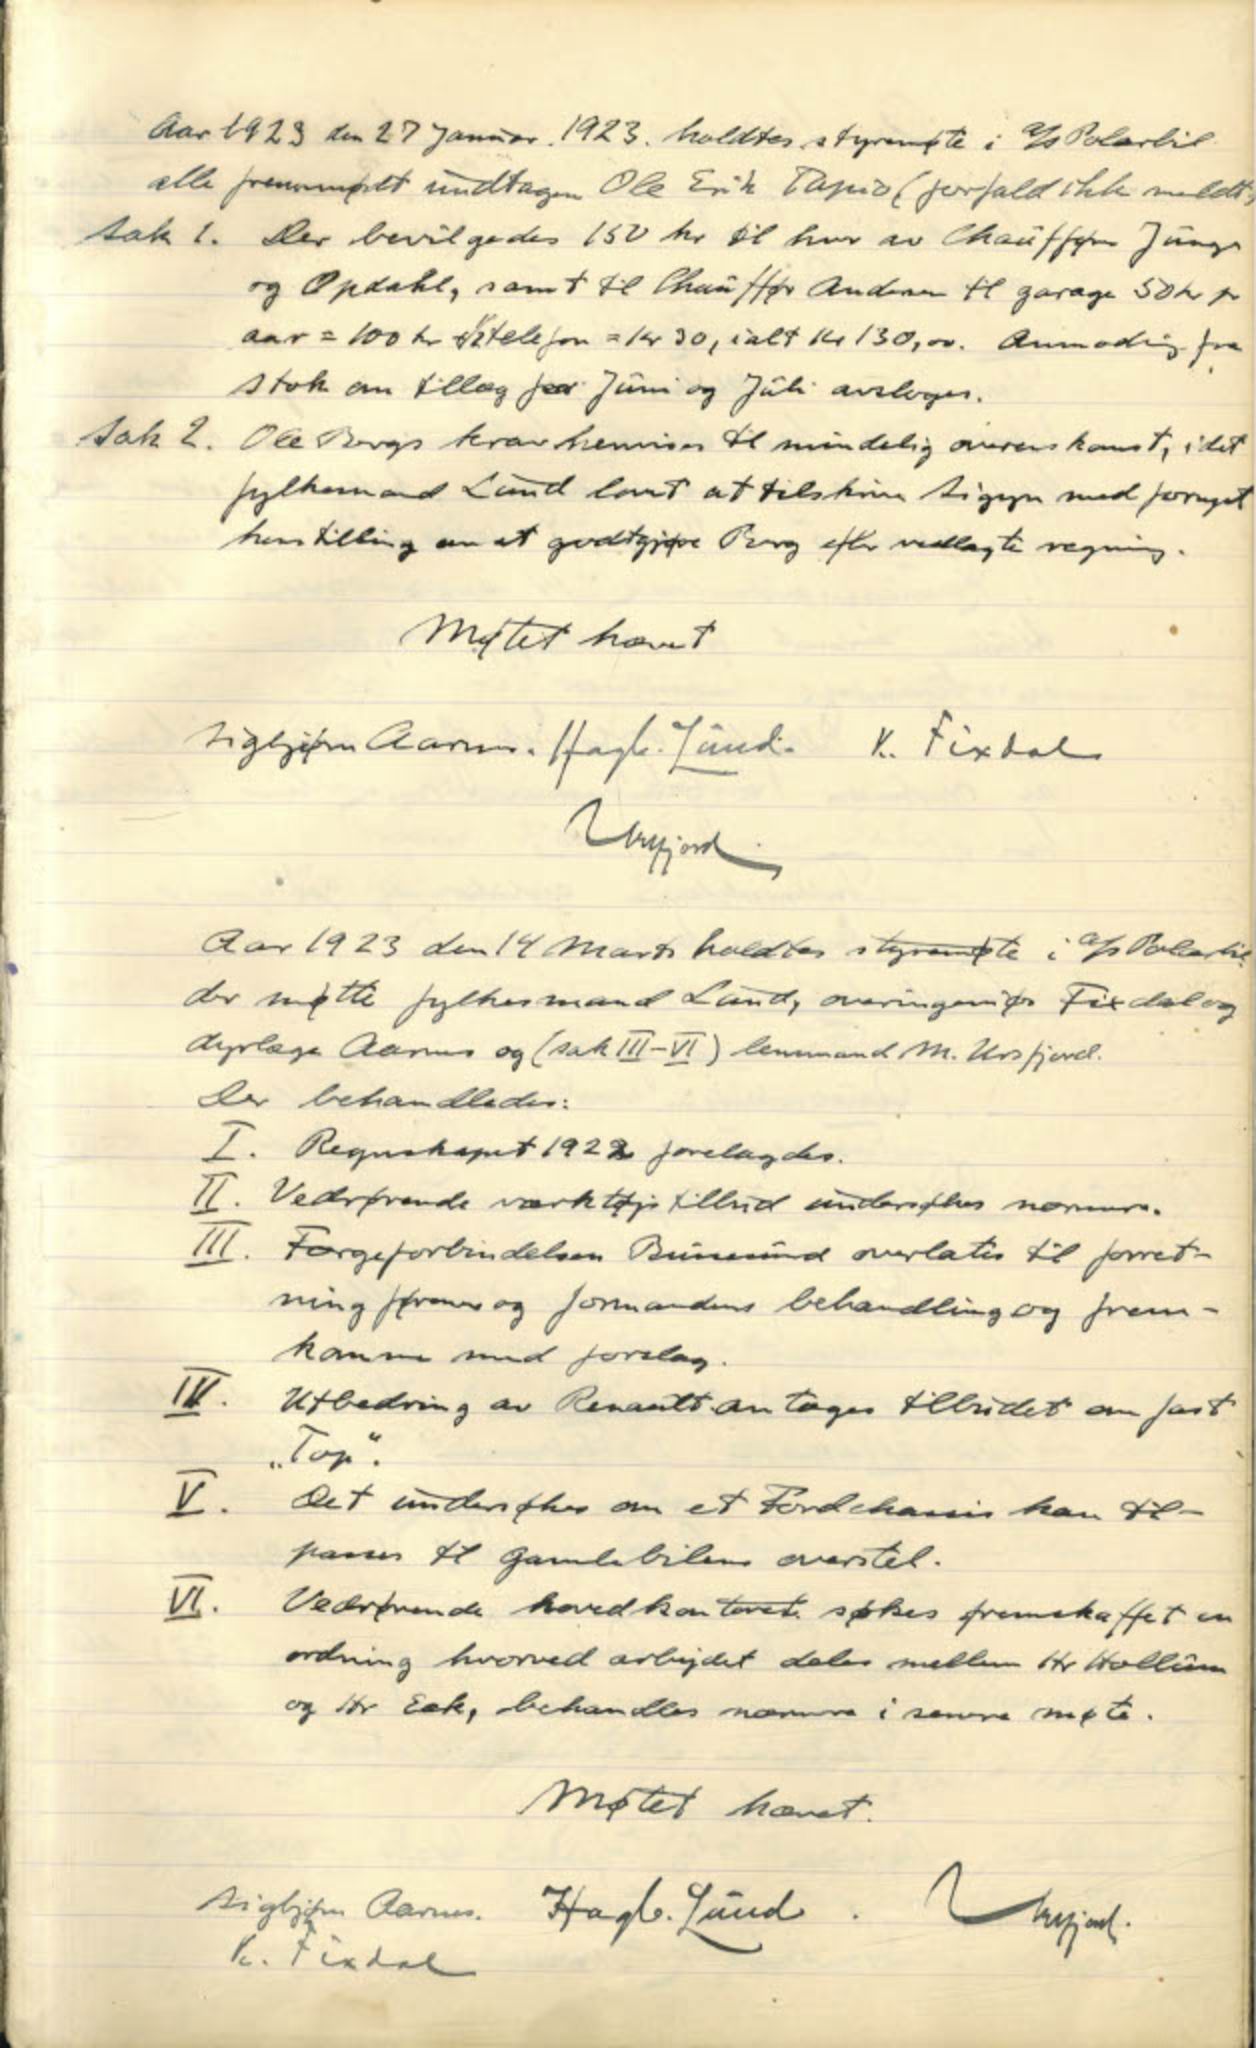 Aar 1923 den 27 Januar. 1923. holdtes styremøte i A/S Polarbil
alle fremmøtt undtagen Ole Erik Tapio (forfald ikke meldt)
Sak 1. Der bevilgedes 150 kr til hver av Chauffør Junge
og Opdahl, samt til Chauffør Andersen til garage 50 kr pr
aar = 100 kr telefon = kr 30, ialt kr 130,00. Anmoding fra
Stok om tillæg for Juni og Juli avsloges.
Sak 2. Ole Bergs krav henvises til mindelig overenskomst, idet
fylkesmand Lund lovet at tilskrive Sigyn med fornyet
henstilling om at godtgjøre Berg efter vedlagte regning.
Møtet hævet
Sigbjørn Aarnes. Hagb. Lund. K. Fixdal
Ursfjord
Aar 1923 den 14 Marts holdtes styremøte i A/S Polarbil.
der møtte fylkesmand Lund, overingeniør Fixdal og
dyrlæge Aarnes og (sak III-VI) lensmand M. Ursfjord.
Der behandledes:
I. Regnskapet 1922 forelagdes.
II. Vedrørende værktøistilbud undersøkes nærmere.
III. Færgeforbindelsen overlates til forret-
ningsfører og formandens behandling og frem-
komme med forslag.
IV. Utbedring av Renault antages tilbudet om fast
„Top".
V. Det undersøkes om et Fordchassis kan til-
passes til gamlebilens overstel.
VI. Vedrørende hovedkontoret søkes fremskaffet en
ordning hvorved arbeidet deles mellem Hr Hollum
og Hr Eek, behandles nærmere i senere møte.
Møtet hævet.
Sigbjørn Aarnes. Hagb. Lund. Ursfjord.
K. Fixdal